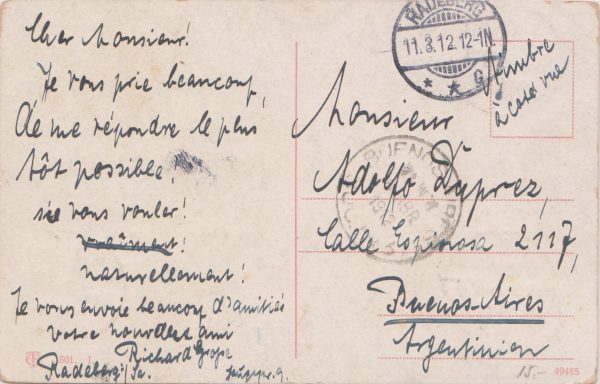 Cher Monsieur!
Je vous prie beaucoup,
de me répondre le plus
tôt possible.
sie vous vouler!
Vraîment!
naturellement!
Je vous envoie beaucoup d'amitiés
votre ami
Richard Grope
Radeberg i/Sa.
801. I
RADEBERG
11.3.12.12-1N.
* * G
Timbre
à coté vue
Monsieur
Adolfo Duprez,
Calle Espinosa 2117,
Buenos-Aires
Argentinien
BUENOS AIRES
1912
15.-
49485